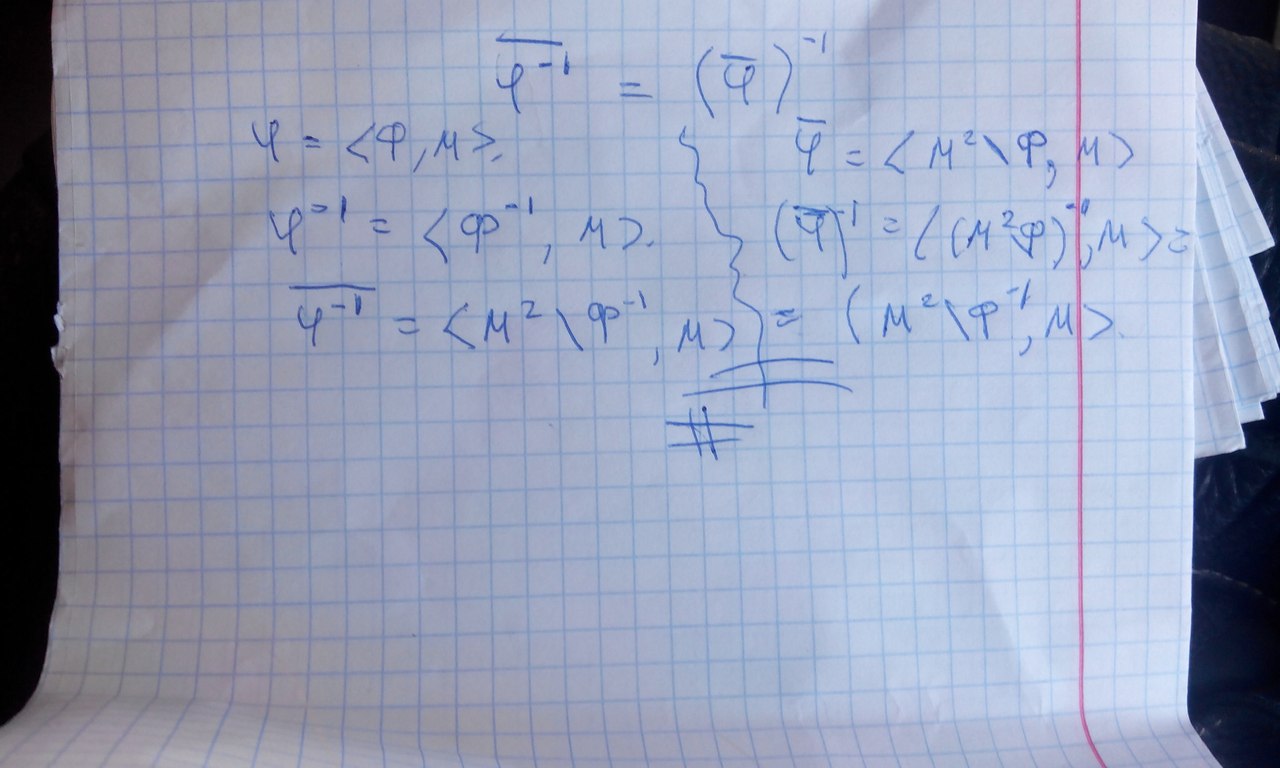 $\overline{\varphi^{-1}} = (\overline{\varphi})^{-1}$
$\varphi = \langle Φ, M \rangle.$
$\varphi^{-1} = \langle Φ^{-1}, M \rangle.$
$\overline{\varphi^{-1}} = \langle M^2 \setminus Φ^{-1}, M \rangle$
$\overline{\varphi} = \langle M^2 \setminus Φ, M \rangle$
$(\overline{\varphi})^{-1} = \langle (M^2 Φ)^{-1}, M \rangle =$
$= \langle M^2 \setminus Φ^{-1}, M \rangle.$
#